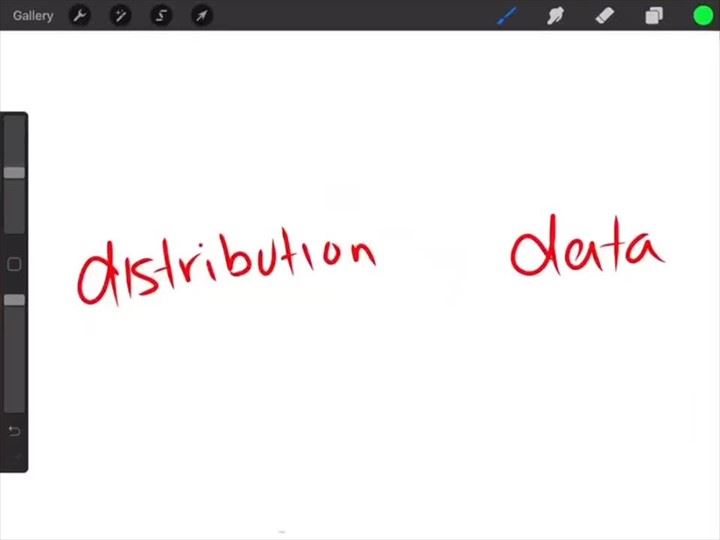 Gallery
distribution data